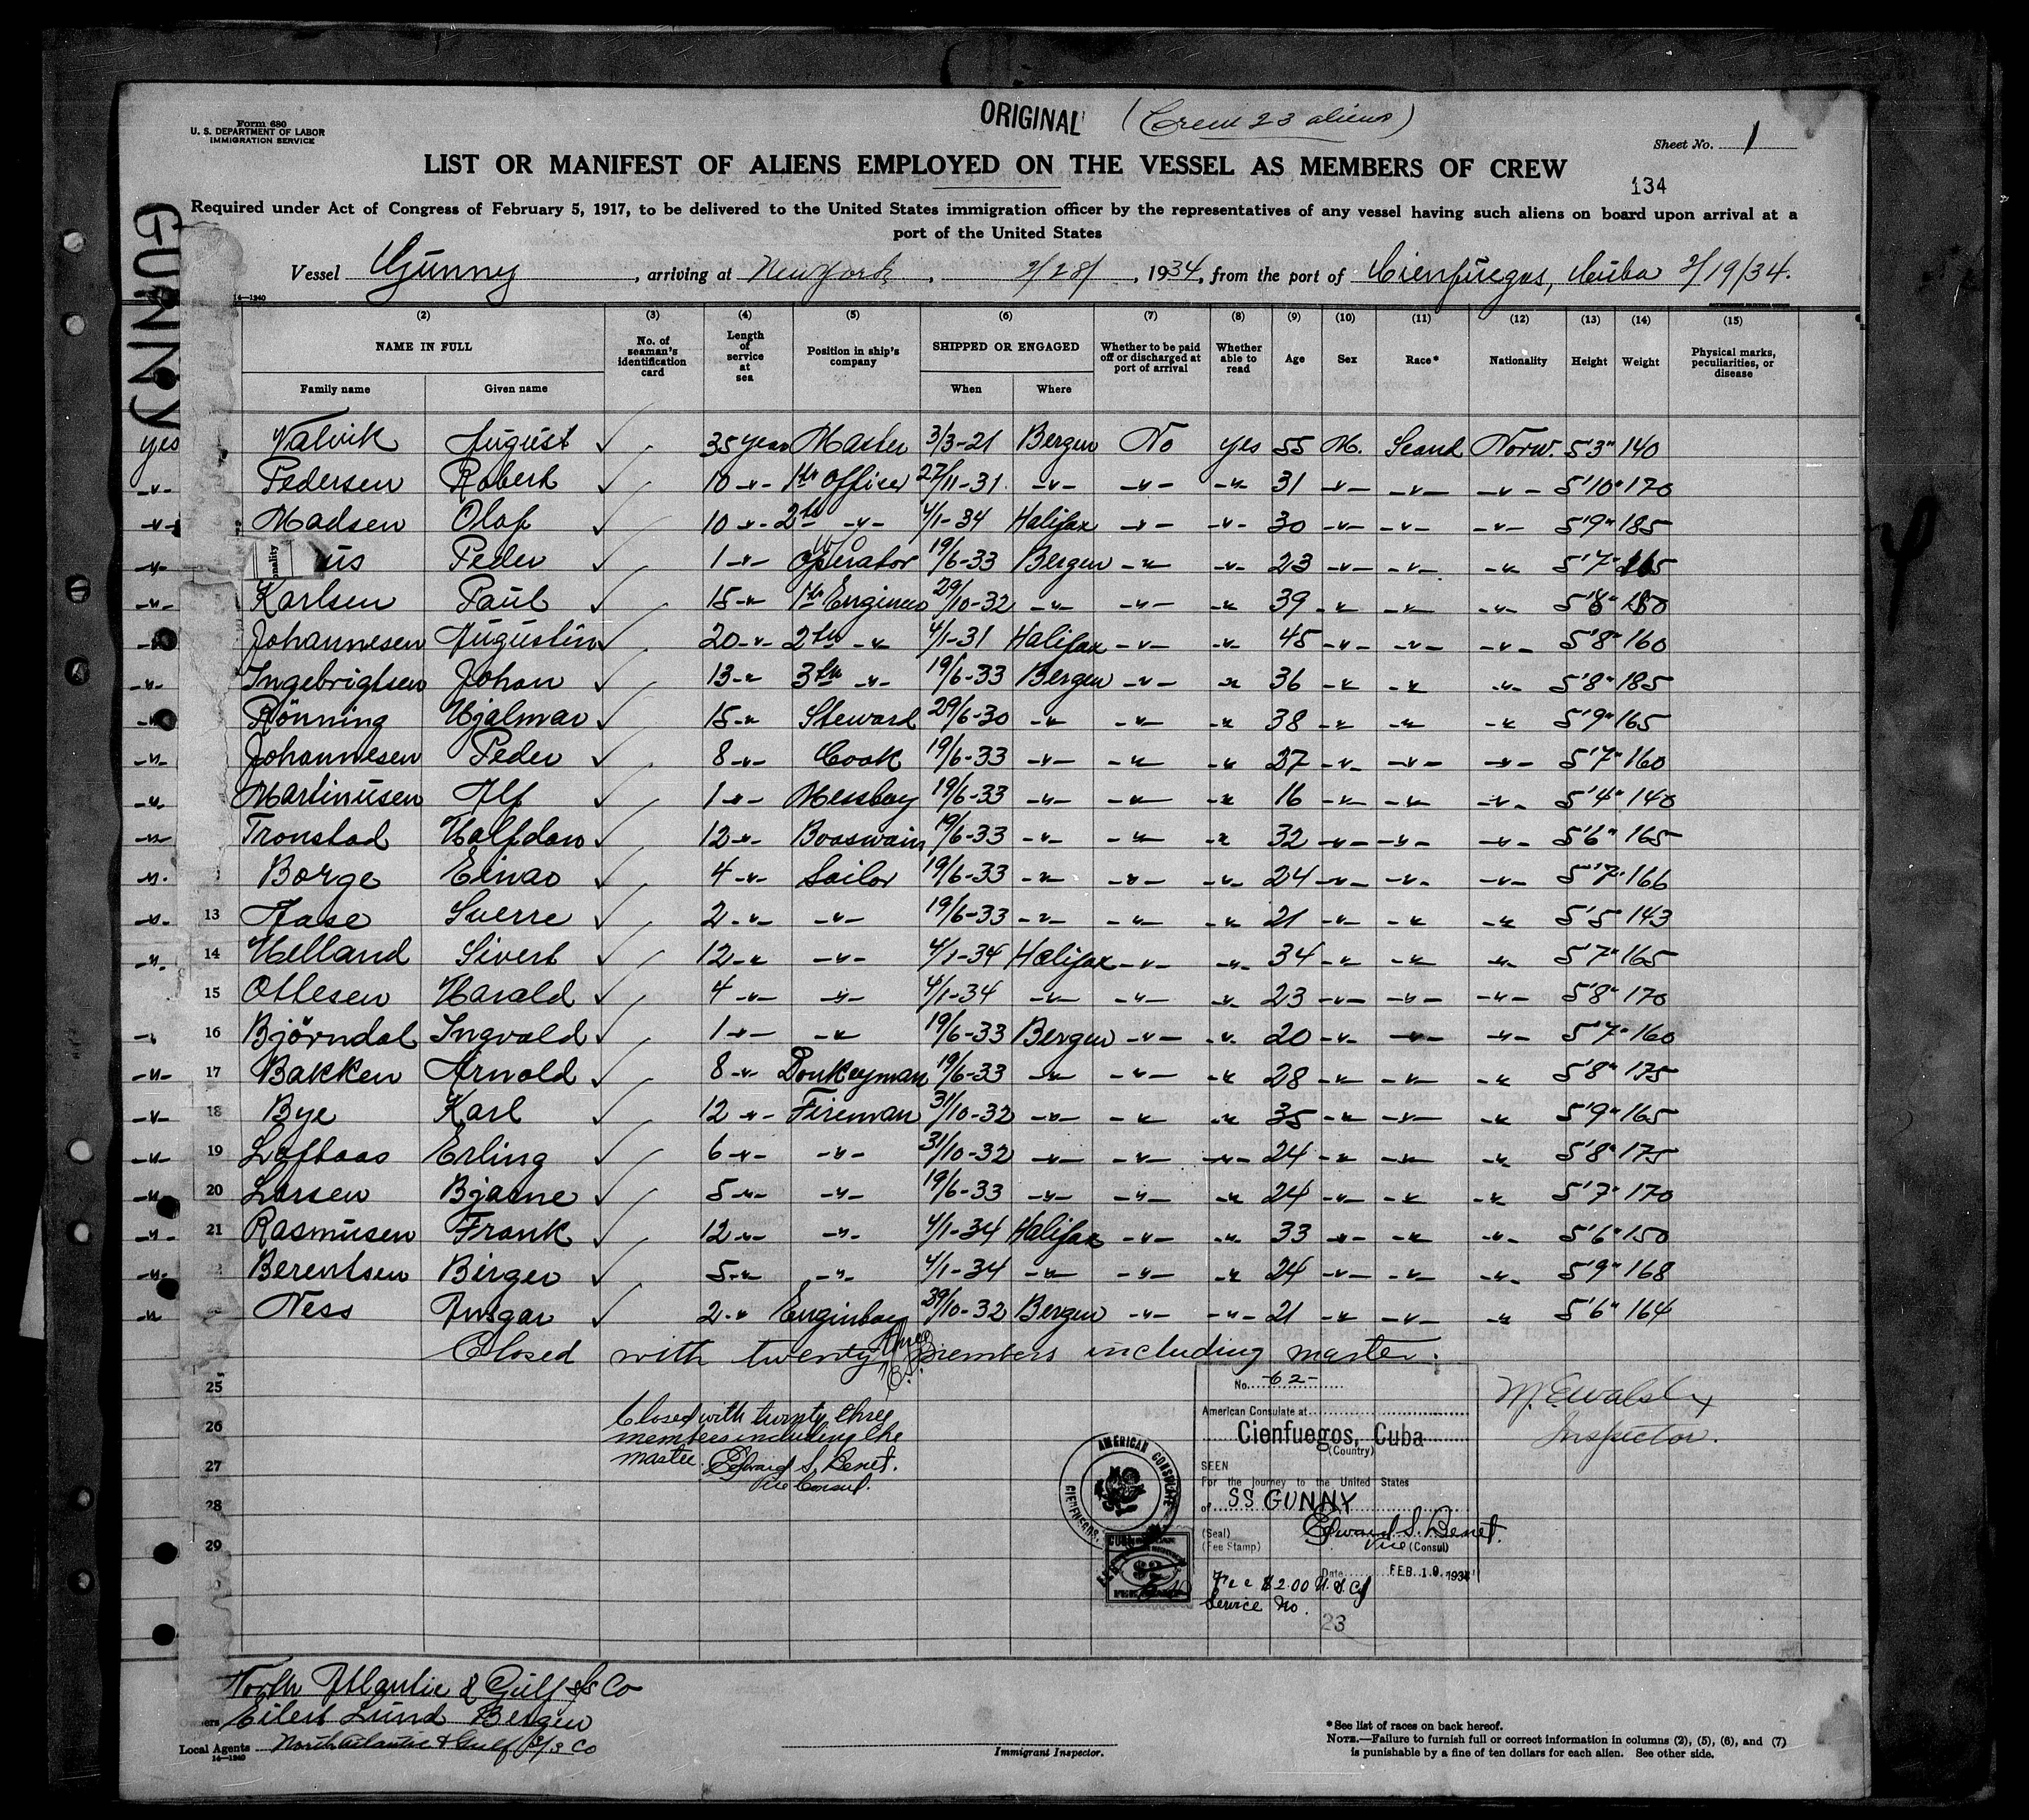 Form 680
U. S. DEPARTMENT OF LABOR
IMMIGRATION SERVICE
ORIGINAL (Crew 23 aliens)
Sheet No. 1
LIST OR MANIFEST OF ALIENS EMPLOYED ON THE VESSEL AS MEMBERS OF CREW
134
Required under Act of Congress of February 5, 1917, to be delivered to the United States immigration officer by the representatives of any vessel having such aliens on board upon arrival at a
port of the United States
GUNNY
Vessel Gunny, arriving at New York, 2/28/, 1934, from the port of Cienfuegos, Cuba 2/19/34.
14—1240
(2) (3) (4) (5) (6) (7) (8) (9) (10) (11) (12) (13) (14) (15)
NAME IN FULL No. of seaman's identification card Length of service at sea Position in ship's company SHIPPED OR ENGAGED Whether to be paid off or discharged at port of arrival Whether able to read Age Sex Race* Nationality Height Weight Physical marks, peculiarities, or disease
Family name Given name When Where
yes Valvik August ✓ 35 year Master 3/3-21 Bergen No yes 55 M. Scand Norw. 5'3" 140
-"- Pedersen Robert ✓ 10 -"- 1th Officer 27/11-31 -"- -"- -"- 31 -"- -"- -"- 5'10" 170
-"- Madsen Olaf ✓ 10 -"- 2th -"- 4/1-34 Halifax -"- -"- 30 -"- -"- -"- 5'9" 185
-"- us Peder ✓ 1 -"- Operator 19/6-33 Bergen -"- -"- 23 -"- -"- -"- 5'7" 165
-"- Karlsen Paul ✓ 15 -"- 1th Engineer 29/10-32 -"- -"- -"- 39 -"- -"- -"- 5'8" 180
-"- Johannesen Augustin ✓ 20 -"- 2th -"- 4/1-31 Halifax -"- -"- 45 -"- -"- -"- 5'8" 160
-"- Ingebrigtsen Johan ✓ 13 -"- 3th -"- 19/6-33 Bergen -"- -"- 36 -"- -"- -"- 5'8" 185
-"- Rönning Hjalmar ✓ 15 -"- Steward 29/6-30 -"- -"- -"- 38 -"- -"- -"- 5'9" 165
-"- Johannesen Peder ✓ 8 -"- Cook 19/6-33 -"- -"- -"- 27 -"- -"- -"- 5'7" 160
-"- Martinusen Alf ✓ 1 -"- Messboy 19/6-33 -"- -"- -"- 16 -"- -"- -"- 5'4" 140
-"- Tronstad Halfdan ✓ 12 -"- Booswain 19/6-33 -"- -"- -"- 32 -"- -"- -"- 5'6" 165
-"- Borge Einar ✓ 4 -"- Sailor 19/6-33 -"- -"- -"- 24 -"- -"- -"- 5'7" 166
-"- 13 Aase Sverre ✓ 2 -"- -"- 19/6-33 -"- -"- -"- 21 -"- -"- -"- 5'5" 143
-"- 14 Helland Sivert ✓ 12 -"- -"- 4/1-34 Halifax -"- -"- 34 -"- -"- -"- 5'7" 165
15 Ottesen Harald ✓ 4 -"- -"- 4/1-34 -"- -"- -"- 23 -"- -"- -"- 5'8" 170
-"- 16 Björndal Ingvald ✓ 1 -"- -"- 19/6-33 Bergen -"- -"- 20 -"- -"- -"- 5'7" 160
-"- 17 Bakken Arnold ✓ 8 -"- Donkeyman 19/6-33 -"- -"- -"- 28 -"- -"- -"- 5'8" 175
-"- 18 Bye Karl ✓ 12 -"- Fireman 31/10-32 -"- -"- -"- 35 -"- -"- -"- 5'9" 165
-"- 19 Loftaas Erling ✓ 6 -"- -"- 31/10-32 -"- -"- -"- 24 -"- -"- -"- 5'8" 175
-"- 20 Larsen Bjarne ✓ 5 -"- -"- 19/6-33 -"- -"- -"- 24 -"- -"- -"- 5'7" 170
-"- 21 Rasmusen Frank ✓ 12 -"- -"- 4/1-34 Halifax -"- -"- 33 -"- -"- -"- 5'6" 150
-"- Berentsen Birger ✓ 5 -"- -"- 4/1-34 -"- -"- -"- 24 -"- -"- -"- 5'9" 168
-"- Ness Ansgar ✓ 2 -"- Enginboy 29/10-32 Bergen -"- -"- 21 -"- -"- -"- 5'6" 164
Closed with twenty three members including master.
25
26
27
28
29
Closed with twenty three
members including the
master. Edward S. Benet.
Vice Consul.
AMERICAN CONSULATE
CIENFUEGOS,
$2
No. -62-
American Consulate at
Cienfuegos, Cuba
(Country)
SEEN
For the journey to the United States
of SS GUNNY
(Seal) Edward S. Benet.
(Fee Stamp) Vice (Consul)
Date FEB. 19. 1934
Fee $2.00 U.S. Cy
Service No.
23
Inspector.
North Atlantic & Gulf S/S Co
Owners Eilert Lund Bergen
Local Agents North Atlantic & Gulf S/S Co
14—1240
Immigrant Inspector.
*See list of races on back hereof.
NOTE.—Failure to furnish full or correct information in columns (2), (5), (6), and (7)
is punishable by a fine of ten dollars for each alien. See other side.